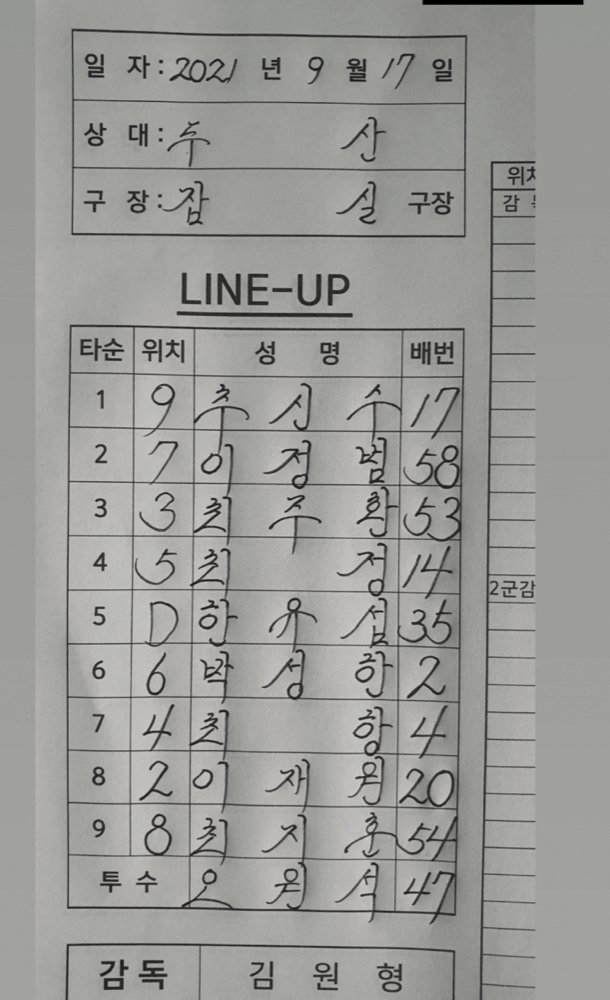 일 자: 2021 년 9 월 17 일
상 대: 두 산
구 장: 잠 실 구장
위치
감 독
LINE-UP
타순 위치 성 명 배번
1 9 추 신 수 17
2 7 이 정 범 58
3 3 최 주 환 53
4 5 최 정 14
5 D 한 유 섬 35
6 6 박 성 한 2
7 4 최 항 4
8 2 이 재 원 20
9 8 최 지 훈 54
투 수 오 원 석 47
2군감
감 독 김 원 형